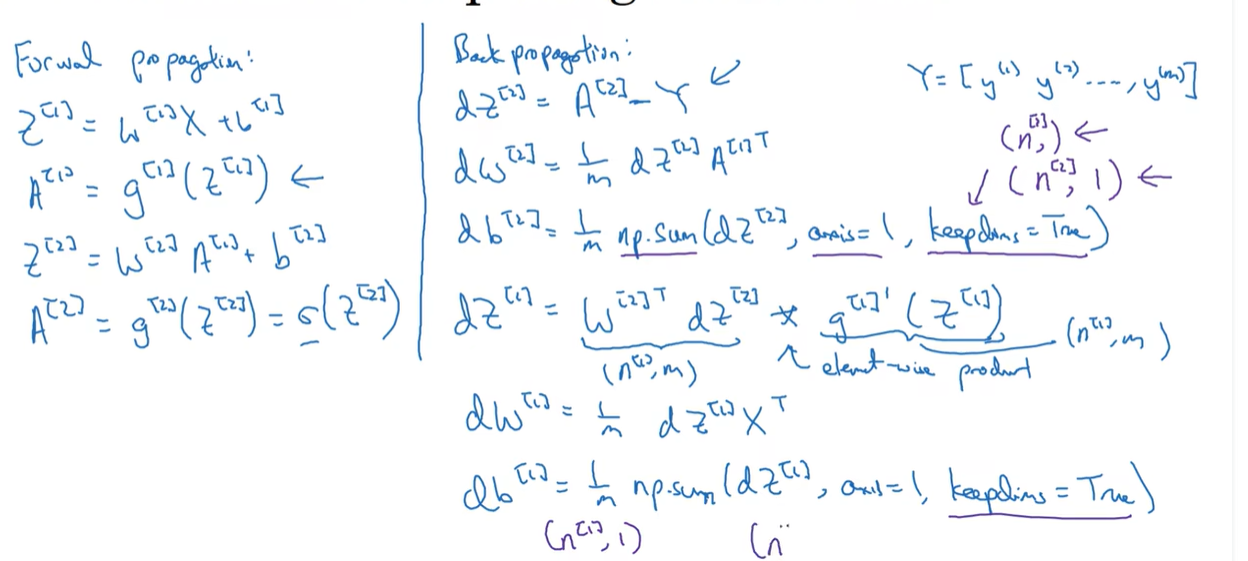 Forwal propagation:
Z^[1] = W^[1] X + b^[1]
A^[1] = g^[1](Z^[1]) ←
Z^[2] = W^[2] A^[1] + b^[2]
A^[2] = g^[2](Z^[2]) = σ(Z^[2])
Back propagation:
dZ^[2] = A^[2] - Y ↙
dW^[2] = 1/m dZ^[2] A^[1]T
db^[2] = 1/m np.sum(dZ^[2], axis=1, keepdims=True)
dZ^[1] = W^[2]T dZ^[2] * g^[1]'(Z^[1])
(n^[1], m) ↖ element-wise product (n^[1], m)
dW^[1] = 1/m dZ^[1] X^T
db^[1] = 1/m np.sum(dZ^[1], axis=1, keepdims=True)
(n^[1], 1) (n
Y = [y^(1) y^(2) ...., y^(m)]
(n^[2],) ←
↙ (n^[2], 1) ←